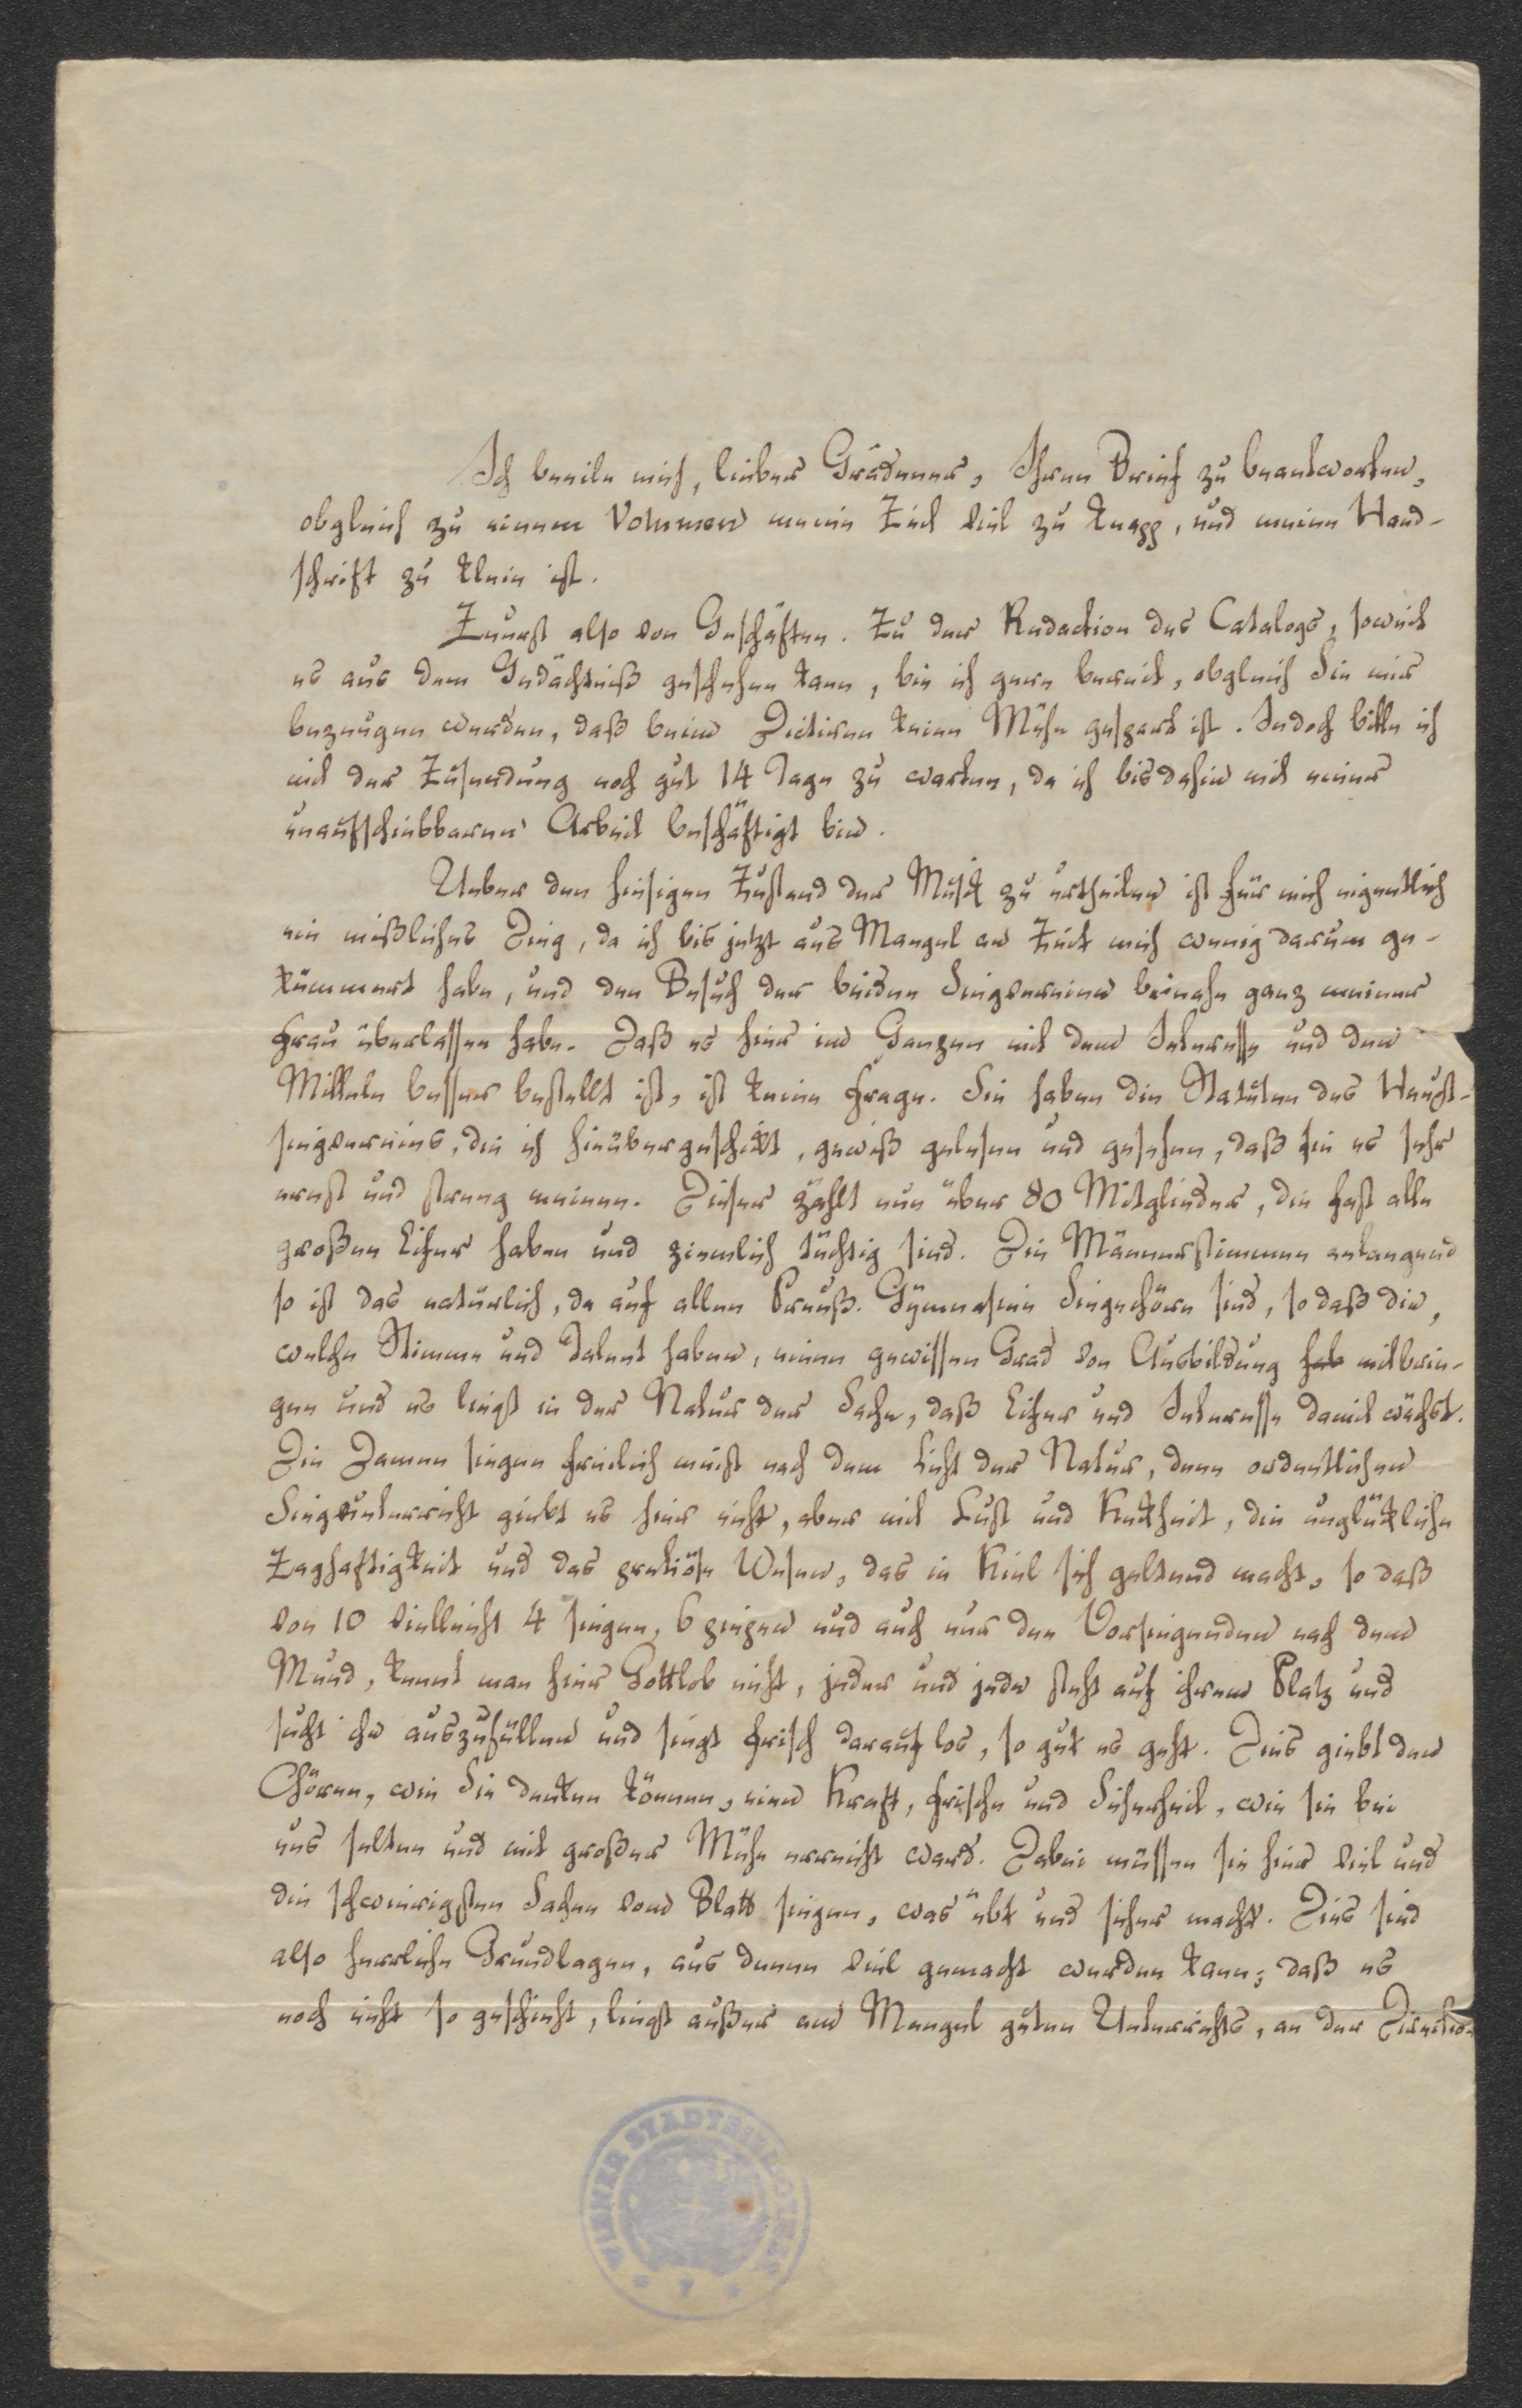 Ich beeile mich, lieber Grädener, Ihren Brief zu beantworten,
obgleich zu einem Volumen meine Zeit viel zu knapp, und meine Hand-
schrift zu klein ist.
Zuerst also von Geschäften. Zu der Redaction des Catalogs, soweit
es aus dem Gedächtniß geschehen kann, bin ich gern bereit, obgleich Sie mir
bezeugen werden, daß beim Dictiren keine Mühe gespart ist. Jedoch bitte ich
mit der Zusendung noch gut 14 Tage zu warten, da ich bis dahin mit einer
unaufschiebbaren Arbeit beschäftigt bin.
Ueber den hiesigen Zustand der Musik zu urtheilen ist für mich eigentlich
ein mißliches Ding, da ich bis jetzt aus Mangel an Zeit mich wenig darum ge-
kümmert habe, und den Besuch der beiden Singvereine beinahe ganz meiner
Frau überlassen habe. Daß es hier im Ganzen mit dem Interesse und den
Mitteln besser bestellt ist, ist keine Frage. Sie haben die Statuten des
singvereins, die ich hinübergeschickt, gewiß gelesen und gesehen, daß sie es sehr
ernst und streng meinen. Dieser zählt nun über 80 Mitglieder, die fast alle
großen Eifer haben und ziemlich tüchtig sind. Die Männerstimmen anlangend
so ist das natürlich, da auf allen Preuß. Gymnasien Singechöre sind, so daß die,
welche Stimme und Talent haben, einen gewissen Grad von Ausbildung hab mitbrin-
gen und es liegt in der Natur der Sache, daß Eifer und Interesse damit wächst.
Die Damen singen freilich meist nach dem Licht der Natur, denn ordentlichen
Singunterricht giebt es hier nicht, aber mit Lust und Keckheit, die unglückliche
Zaghaftigkeit und das pretiöse Wesen, das in Kiel sich geltend macht, so daß
von 10 vielleicht 4 singen, 6 piepen und auch nur den Vorsingenden nach dem
Mund, kennt man hier Gottlob nicht, jeder und jede steht auf ihrem Platz und
sucht ihn auszufüllen und singt frisch darauf los, so gut es geht. Dies giebt den
Chören, wie Sie denken können, eine Kraft, Frische und Sicherheit, wie sie bei
uns selten und mit großer Mühe erreicht ward. Dabei müssen sie hier viel und
die schwierigsten Sachen vom Blatt singen, was übt und sicher macht. Dies sind
also herrliche Grundlagen, aus denen viel gemacht werden kann; daß es
noch nicht so geschieht, liegt außer am Mangel guten Unterrichts, an der Direction
WIENER STADTBIBLIOTHEK